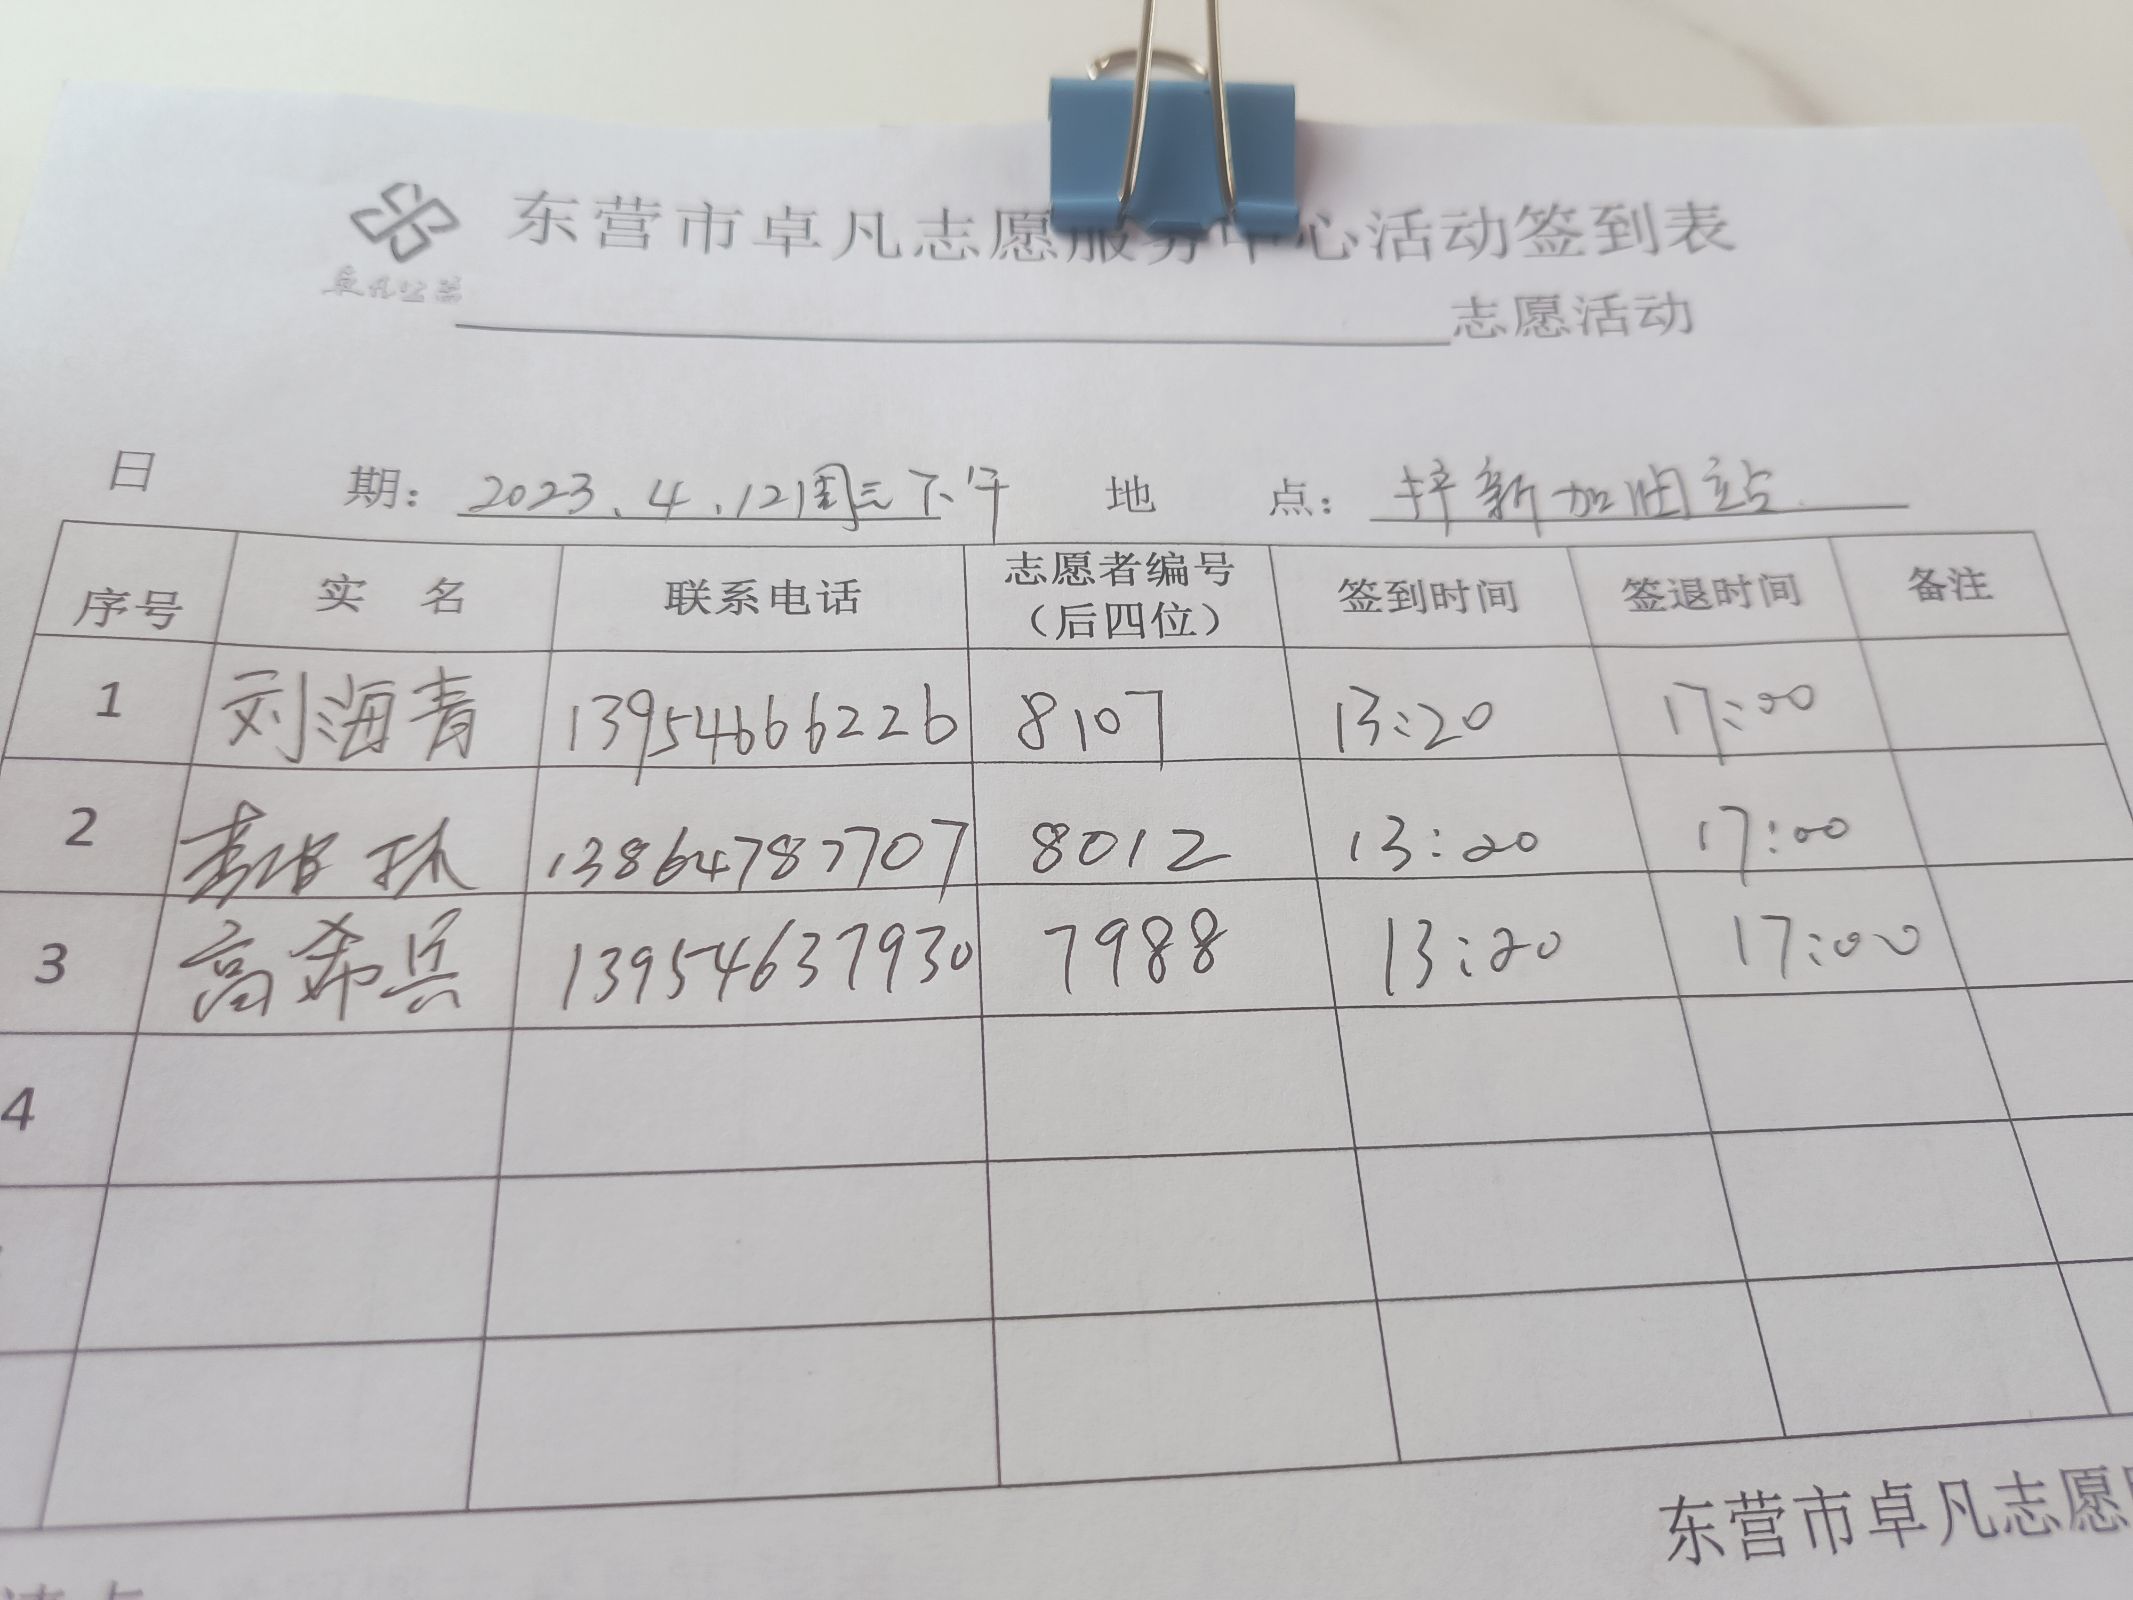 东营市卓凡志愿服务中心活动签到表
卓凡公益
志愿活动
日期：2023.4.12周三下午 地点：辛新加油站
序号 实名 联系电话 志愿者编号（后四位） 签到时间 签退时间 备注
1 刘海青 13954666226 8107 13:20 17:00
2 13864787707 8012 13:20 17:00
3 高希兵 13954637930 7988 13:20 17:00
4
东营市卓凡志愿